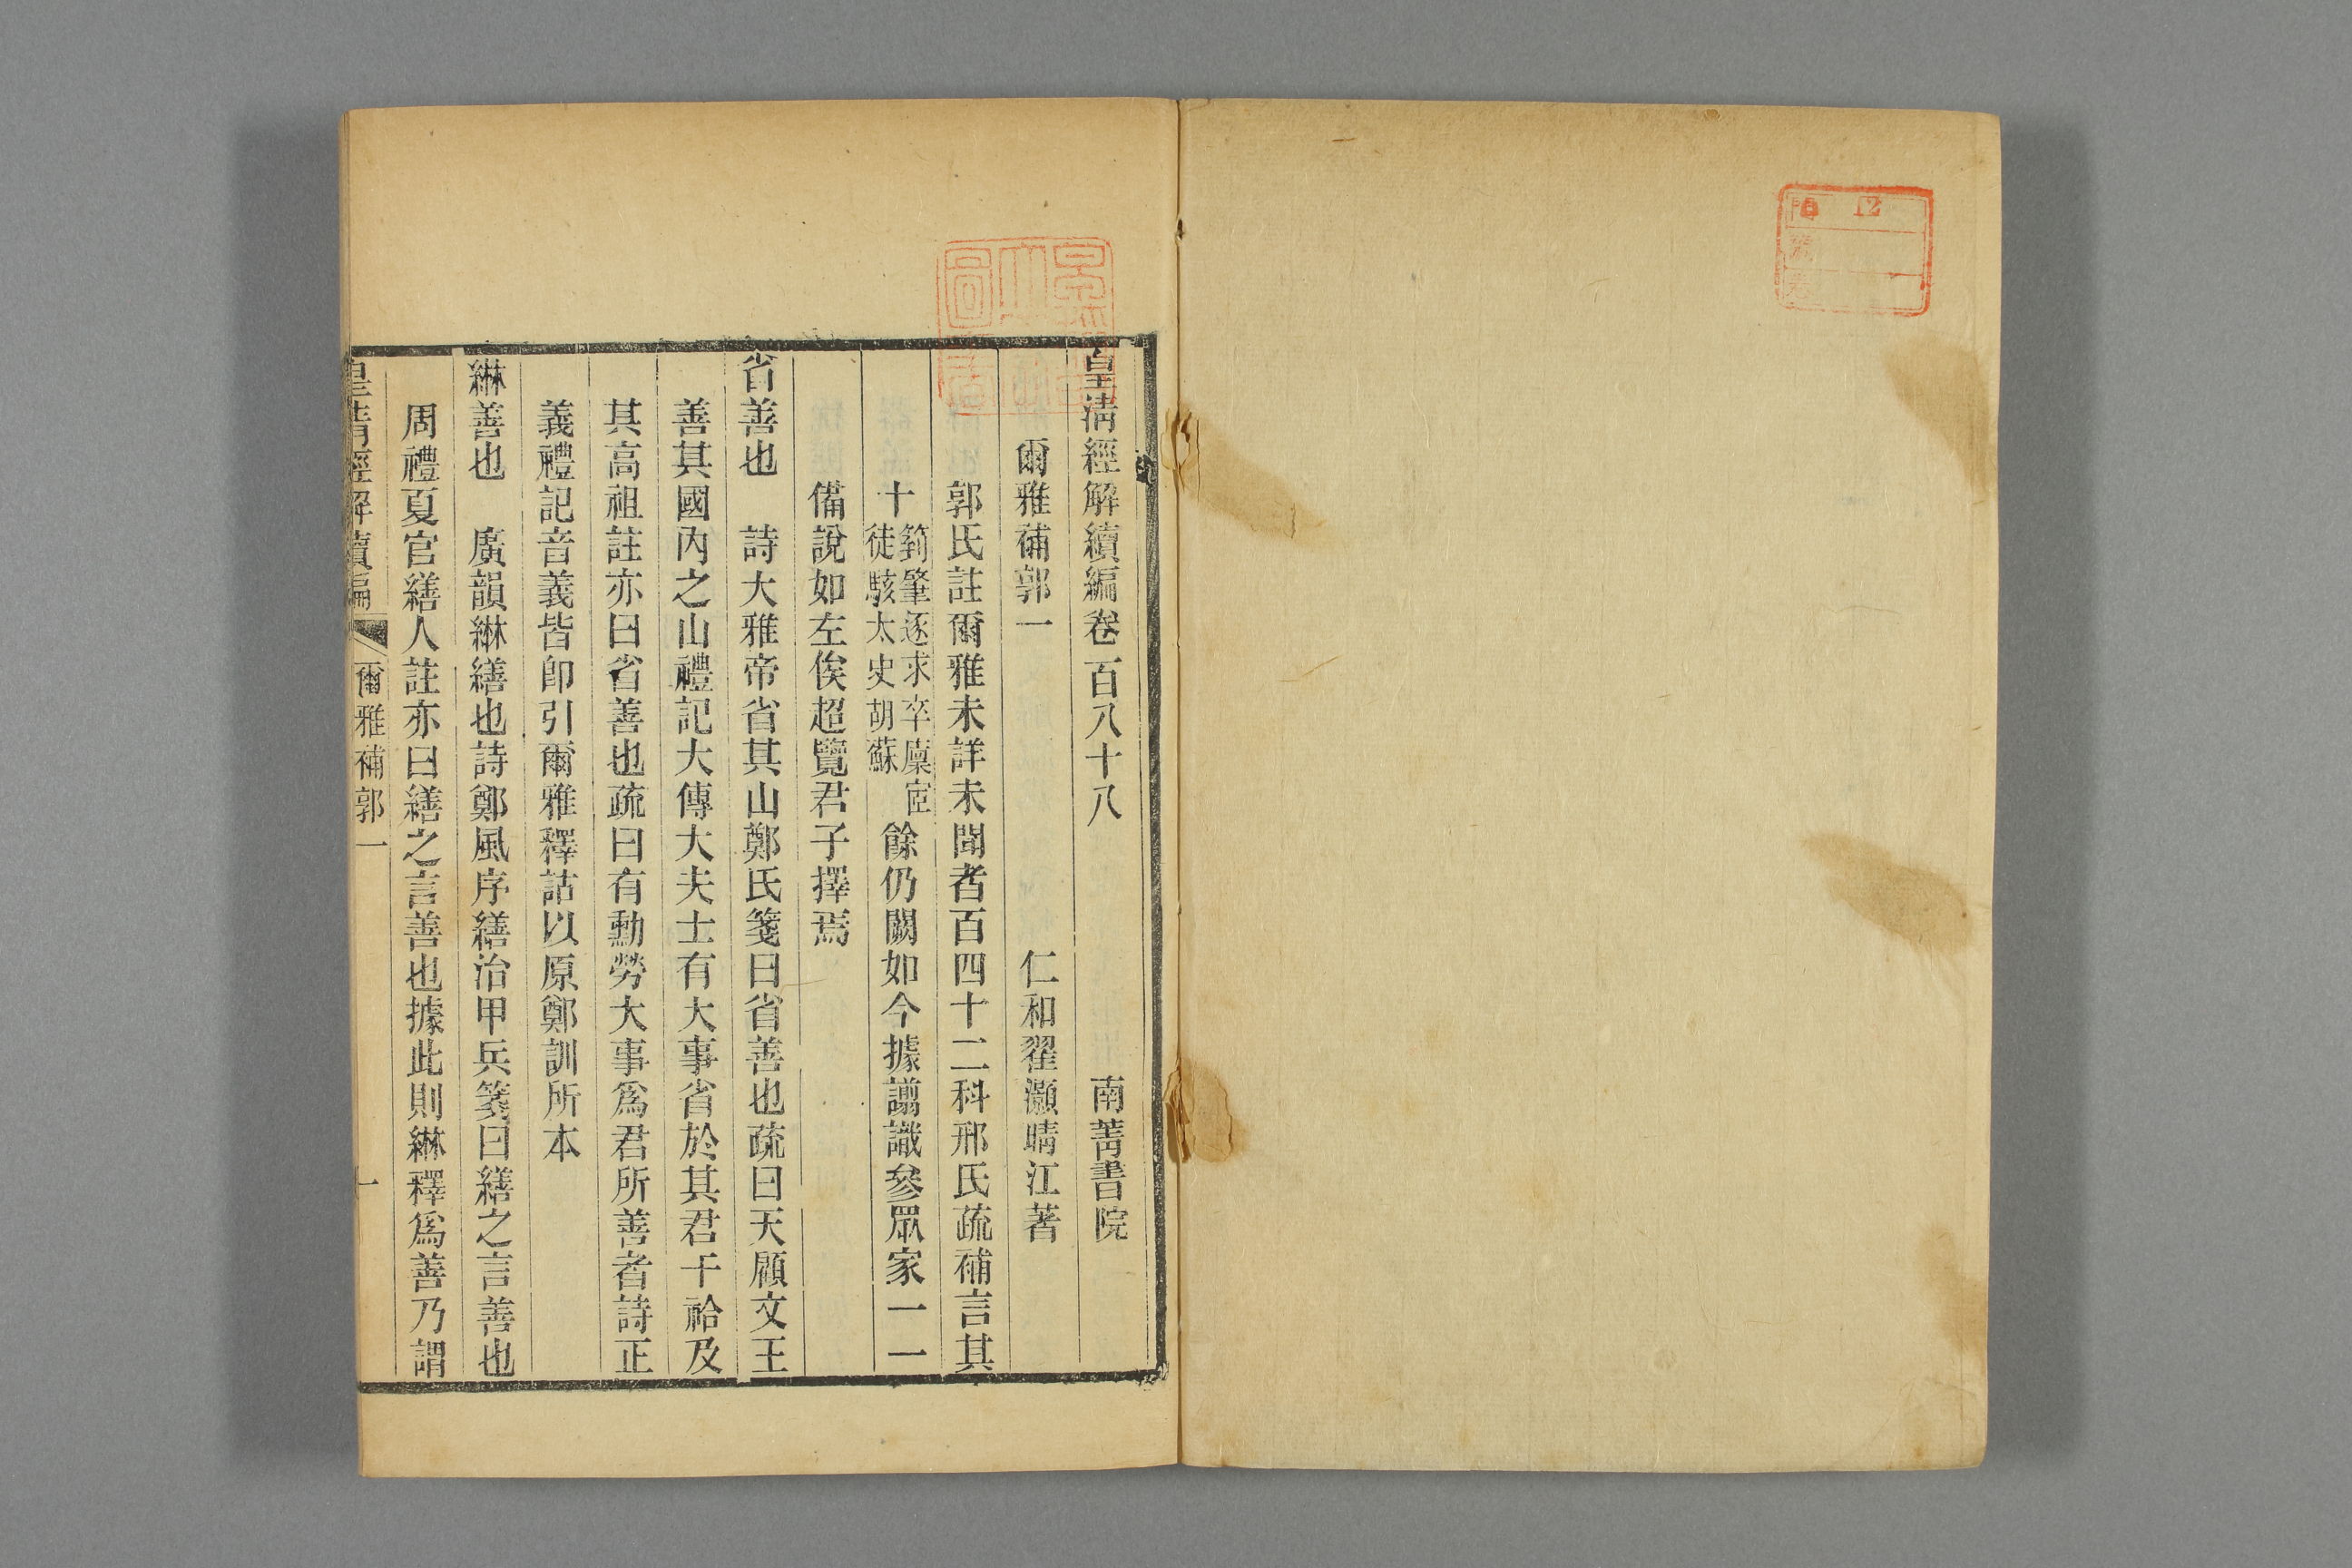 皇淸經解續編卷百八十八
南菁書院
爾雅補郭一
仁和翟灝晴江著
郭氏註爾雅未詳未聞者百四十二科邢氏疏補言其
十
箌肇逐求卒廩宧
徒駭太史胡蘇
餘仍闕如今據讅識參眾家一一
備說如左俟超覽君子擇焉
省善也　詩大雅帝省其山鄭氏箋曰省善也疏曰天顧文王
善其國內之山禮記大傳大夫士有大事省於其君干祫及
其高祖註亦曰省善也疏曰有勳勞大事爲君所善者詩正
義禮記音義皆卽引爾雅釋詁以原鄭訓所本
綝善也　廣韻綝繕也詩鄭風序繕治甲兵箋曰繕之言善也
周禮夏官繕人註亦曰繕之言善也據此則綝釋爲善乃謂
皇清經解續編
爾雅補郭一
一
12